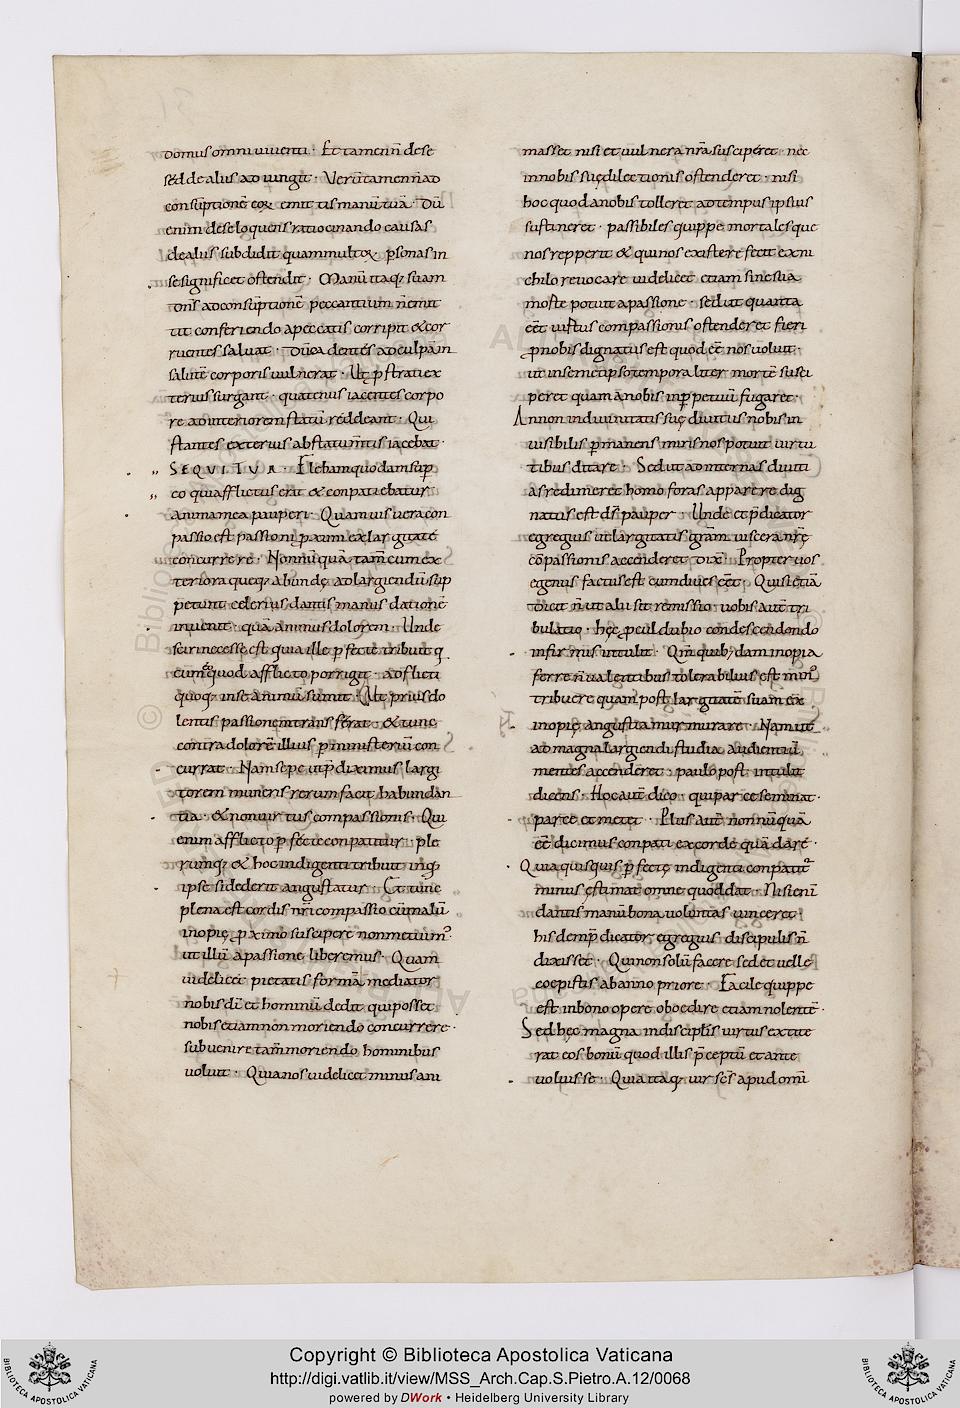 domus omni uiuenti · Et tamen n̄ de se
sed de aliis adiungit · Verūtamen n̄ ad
consūptionē eoꝝ emittis manū tuā · Dū
enim de se loquens ratiocinando causas
de aliis subdidit quam multoꝝ ꝑsonas in
se significet ostendit · Manū itaq; suam
dn̄s ad consūptionē peccantium n̄ emit
tit cū feriendo a peccatis corripit & cor
ruentes saluat · Dū ea dentes ad culpā in
salutē corporis uulnerat · Ut ꝓstrati ex
terius surgant · quatenus iacentes corpo
re ad interiorem statū redeant · Qui
stantes exterius ab statu mtis iacebat ·
SEQVITVR · Flebam quondam sup
eo qui afflictus erat & conpatiebatur
anima mea pauperi · Quamuis uera con
passio est passioni ꝓximi ex largitate
concurrere · Nonnūquā tam̄ cum ex
teriora queq; abunde ad largiendū sup
petunt celerius dantis manus datione
inuenit · quā animus dolorem · Unde
sciri necesse est quia ille ꝑfecte tribuit q
cum eo quod afflicto porrigit · adflicti
quoq; in se animū sumit · Ut prius do
lentis passionem in se trans ferat · & tunc
contra dolorē illius ꝑ ministeriū con
currat · Nam sepe ut p̄diximus largi
torem muneris rerum facit habundan
tia · & non uirtus compassionis · Qui
enim afflicto ꝑfecte conpatitur · ple
rumq; & hoc indigenti tribuit in q;
ipse si dederit angustatur · Et tunc
plena est cordis nr̄i compassio cū malū
inopię ꝓ ximo suscipere non metuim'
ut illū a passione liberemus · Quam
uidelicet pietatis formā mediator
nobis dī et hominū dedit qui posset
nobis etiam non moriendo concurrere ·
subuenire tam̄ moriendo hominibus
uoluit · Quia nos uidelicet minus am
masset nisi et uulnera nr̄a susciperet · nec
in nobis suę dilectionis ostenderet · nisi
hoc quod a nobis tolleret ad tempus ipsius
sustineret · passibiles quippe mortalesque
nos repperit & qui nos existere fecit ex ni
chilo reuocare uidelicet etiam sine sua
morte potuit a passione · sed ut quanta
eēt uirtus compassionis ostenderet fieri
ꝓ nobis dignatus est quod eē nos noluit ·
ut in semetipso temporaliter mortē susci
peret quam a nobis in ꝑpetuū fugaret ·
An non in diuinitatis suę diuitiis nobis in
uisibilis ꝑmanens miris nos potuit uirtu
tibus ditare · Sed ut ad internas diuiti
as redimeret homo foras apparere dig
natus est ds̄ pauper · Unde et p̄dicator
egregius ut largitatis gr̄am uiscera nr̄ę
cōpassionis accenderet dix̄ · Propter uos
egenus factus est cum diues eēt · Quis etiā
dicit n̄ ut aliis sit remissio · uobis autē tri
bulatio · hęc ꝓcul dubio condescendendo
infirmis intulit · Qm̄ quib;dam inopia
ferre n̄ ualentibus tolerabilius est min'
tribuere quam post largitatē suam ex
inopię angustia murmurare · Nam ut
ad magna largiendi studia audientiū
mentes accenderet · paulo post intulit
dicens · Hoc autē dico · qui parce seminat ·
parce et metet · Plus autē nonnūquā
eē dicimus conpati ex corde quā dare ·
Quia quisquis ꝑfectę indigenti conpatit̄
minus ęstimat omne quod dat · Nisi eni
dantis manū bona uoluntas uinceret ·
his dem p̄dicator egregius discipulis n̄
dixisset · Qui non solū facere sed et uelle
coepistis ab anno priore · Facile quippe
est in bono opere oboedire etiam nolentē ·
Sed hęc magna in discipl̄is uirtus extite
rat eos bonū quod illis p̄ceptū et ante
uoluisse · Quia itaq; uir scs̄ apud omi
Copyright © Biblioteca Apostolica Vaticana
http://digi.vatlib.it/view/MSS_Arch.Cap.S.Pietro.A.12/0068
powered by DWork • Heidelberg University Library